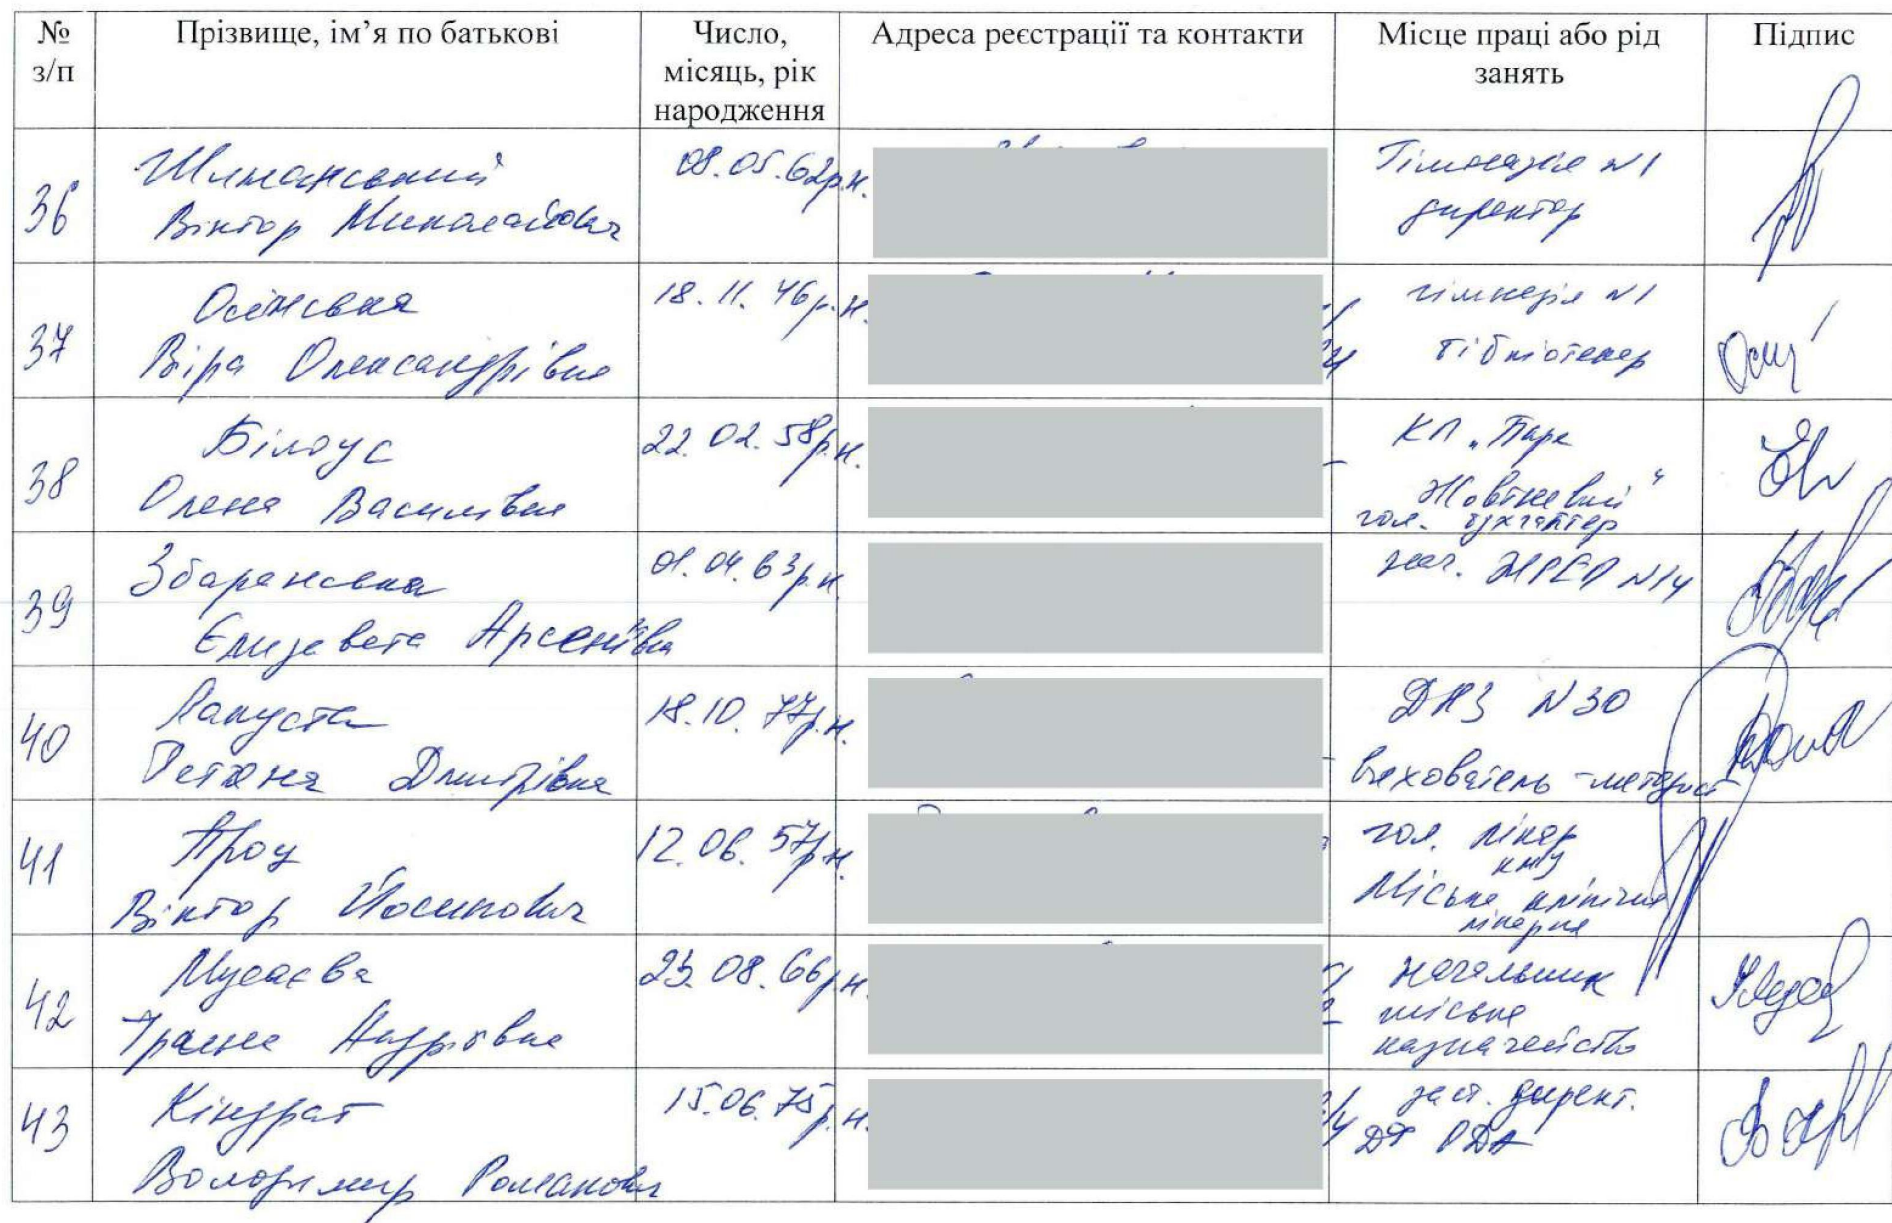 № з/п
Прізвище, ім’я по батькові
Число, місяць, рік народження
Адреса реєстрації та контакти
Місце праці або рід занять
Підпис
36
Віктор Миколайович
08.05.62р.н.
Гімназія №1
директор
37
Осінська
Віра Олександрівна
18.11.46р.н.
гімназія №1
бібліотекар
38
Білоус
Олена Василівна
22.02.58р.н.
КП „Парк
Жовтневий“
гол. бухгалтер
39
Збаранська
Єлизавета Арсеніївна
01.04.63р.н.
нач. ЖРЕП №14
40
Лапуста
Тетяна Дмитрівна
18.10.77р.н.
ДНЗ №30
вихователь-методист
41
Проц
Віктор Йосипович
12.06.57р.н.
гол. лікар
Міська клінічна
лікарня
42
Мусаєва
Ірина Андріївна
23.08.66р.н.
начальник
міське
казначейство
43
Кіндрат
Володимир Романович
15.06.75р.н.
заст. директ.
ДФ ОДА